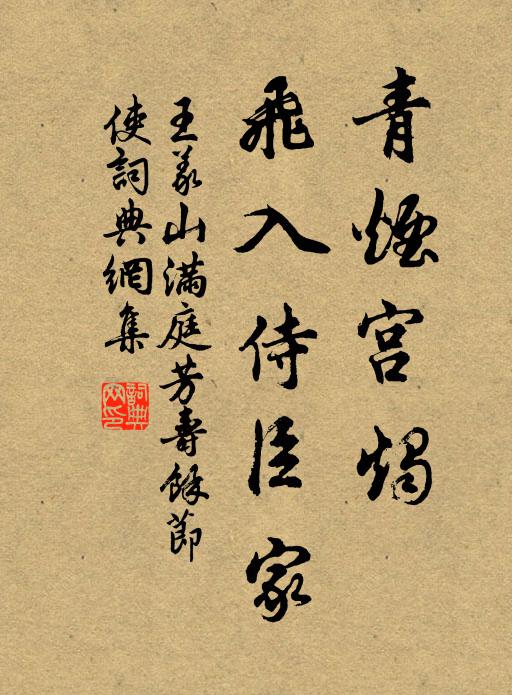 青煙宮燭
飛入侍臣家
王義山滿庭芳壽餘節
使詞典網集
詞典
網印